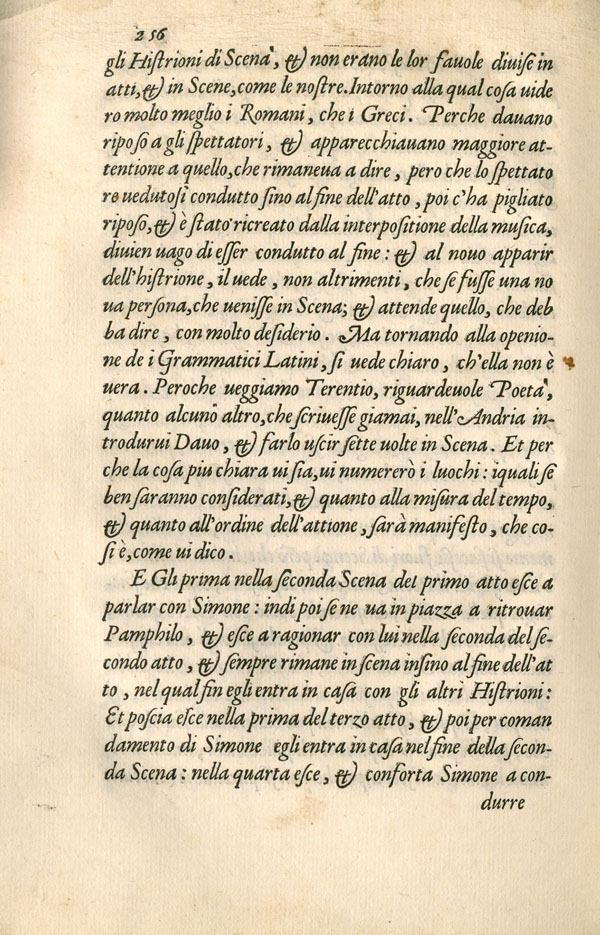 256
gli Histrioni di Scena, & non erano le lor fauole diuise in
atti, & in Scene, come le nostre. Intorno alla qual cosa uide
ro molto meglio i Romani, che i Greci. Perche dauano
riposo a gli spettatori, & apparecchiauano maggiore at-
tentione a quello, che rimaneua a dire, pero che lo spettato
re uedutosi condutto sino al fine dell'atto, poi c'ha pigliato
riposo, & è stato ricreato dalla interpositione della musica,
diuien uago di esser condutto al fine: & al nouo apparir
dell'histrione, il uede, non altrimenti, che se fusse una no
ua persona, che uenisse in Scena; & attende quello, che deb
ba dire, con molto desiderio. Ma tornando alla openio-
ne de i Grammatici Latini, si uede chiaro, ch'ella non è
uera. Peroche ueggiamo Terentio, riguardeuole Poeta,
quanto alcuno altro, che scriuesse giamai, nell'Andria in-
trodurui Dauo, & farlo uscir sette uolte in Scena. Et per
che la cosa piu chiara ui sia, ui numererò i luochi: iquali se
ben saranno considerati, & quanto alla misura del tempo,
& quanto all'ordine dell'attione, sarà manifesto, che co-
si è, come ui dico.
E Gli prima nella seconda Scena del primo atto esce a
parlar con Simone: indi poi se ne ua in piazza a ritrouar
Pamphilo, & esce a ragionar con lui nella seconda del se-
condo atto, & sempre rimane in scena insino al fine dell'at
to, nel qual fin egli entra in casa con gli altri Histrioni:
Et poscia esce nella prima del terzo atto, & poi per coman
damento di Simone egli entra in casa nel fine della secon-
da Scena: nella quarta esce, & conforta Simone a con-
durre